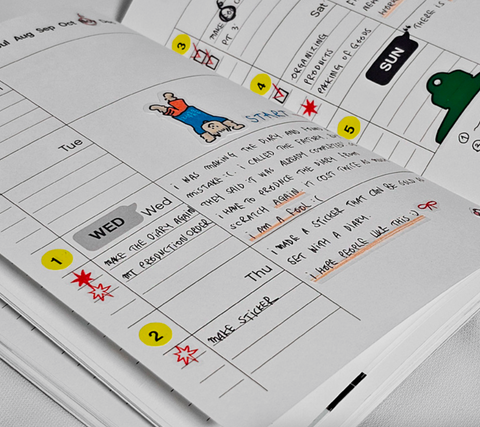 Aug Sep Oct
Tue
WED
Wed
1
MAKE THE DIARY AGAIN
MY PRODUCTION ORDER
Thu
2
MAKE STICKER
START
I WAS MAKING THE DIARY AND
MISTAKE :(. I CALLED THE FACTORY
THEY SAID IT WAS ALREADY COMPLETED
I HAVE TO PRODUCE THE DIARY FROM
SCRATCH AGAIN. IT COST TWICE AS
I AM A FOOL :(
I MADE A STICKER THAT CAN BE SOLD AS
SET WITH A DIARY.
I HOPE PEOPLE LIKE THIS :)
Sat
MAKE
PT 3
3
ORGANIZING
PRODUCTS
4
PAKING OF GOODS
SUN
THERE IS
5
1